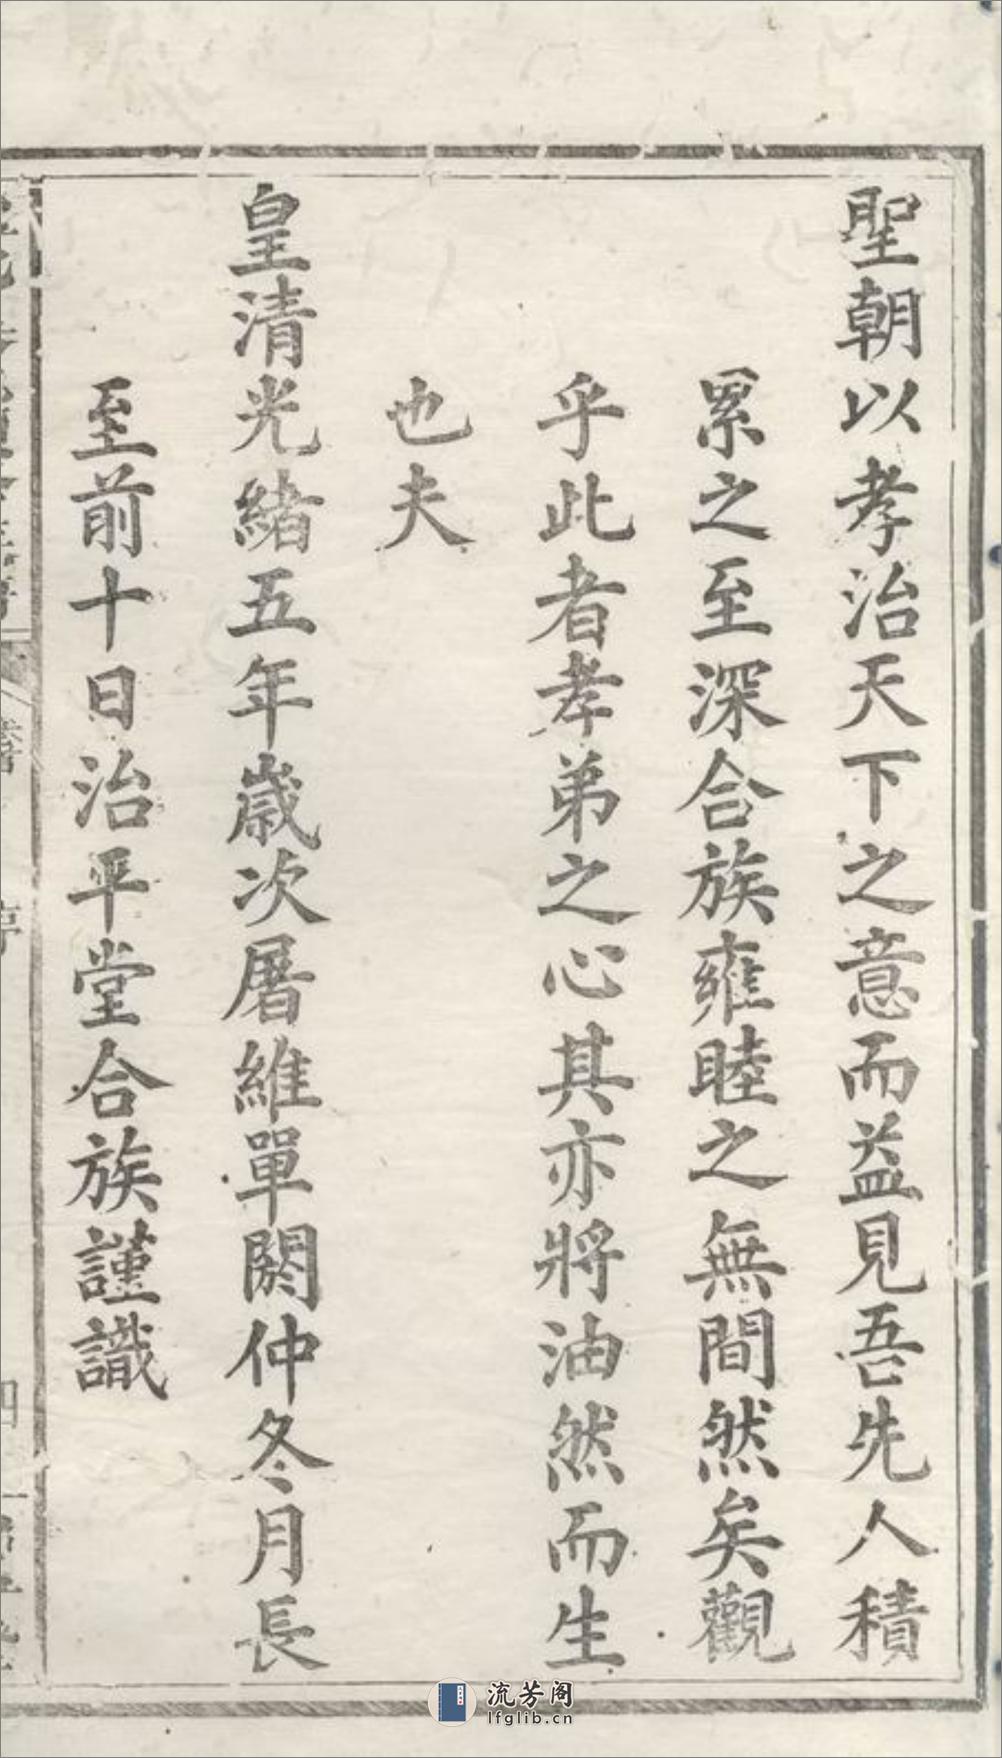 聖朝以孝治天下之意而益見吾先人積
累之至深合族雍睦之無間然矣觀
乎此者孝弟之心其亦將油然而生
也夫
皇清光緒五年歲次屠維單閼仲冬月長
至前十日治平堂合族謹識
流芳阁
lfglib.cn